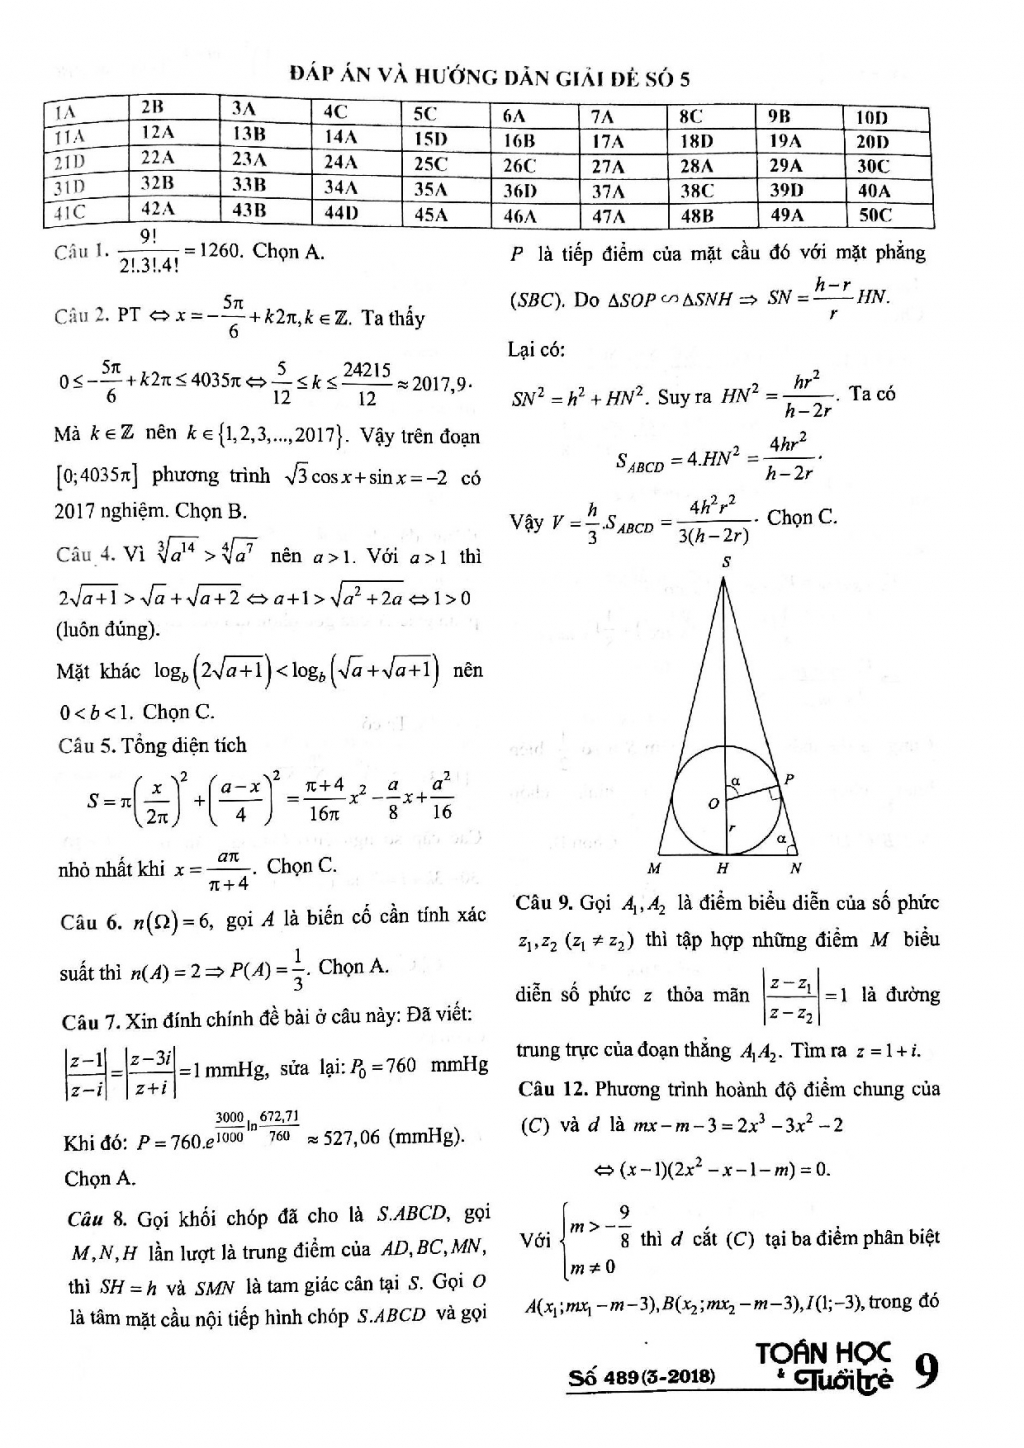 ĐÁP ÁN VÀ HƯỚNG DẪN GIẢI ĐỀ SỐ 5
1A 2B 3A 4C 5C 6A 7A 8C 9B 10D
11A 12A 13B 14A 15D 16B 17A 18D 19A 20D
21D 22A 23A 24A 25C 26C 27A 28A 29A 30C
31D 32B 33B 34A 35A 36D 37A 38C 39D 40A
41C 42A 43B 44D 45A 46A 47A 48B 49A 50C
Câu 1. 9!/(2!.3!.4!) = 1260. Chọn A.
Câu 2. PT ⇔ x = −5π/6 + k2π, k ∈ ℤ. Ta thấy
0 ≤ −5π/6 + k2π ≤ 4035π ⇔ 5/12 ≤ k ≤ 24215/12 ≈ 2017,9.
Mà k ∈ ℤ nên k ∈ {1,2,3,...,2017}. Vậy trên đoạn
[0;4035π] phương trình √3 cos x + sin x = −2 có
2017 nghiệm. Chọn B.
Câu 4. Vì ∛(a¹⁴) > ∜(a⁷) nên a > 1. Với a > 1 thì
2√(a+1) > √a + √(a+2) ⇔ a+1 > √(a²+2a) ⇔ 1 > 0
(luôn đúng).
Mặt khác log_b(2√(a+1)) < log_b(√a + √(a+1)) nên
0 < b < 1. Chọn C.
Câu 5. Tổng diện tích
S = π(x/2π)² + ((a−x)/4)² = (π+4)/(16π) x² − (a/8)x + a²/16
nhỏ nhất khi x = aπ/(π+4). Chọn C.
Câu 6. n(Ω) = 6, gọi A là biến cố cần tính xác
suất thì n(A) = 2 ⇒ P(A) = 1/3. Chọn A.
Câu 7. Xin đính chính đề bài ở câu này: Đã viết:
|(z−1)/(z−i)| = |(z−3i)/(z+i)| = 1 mmHg, sửa lại: P₀ = 760 mmHg
Khi đó: P = 760.e^((3000/1000) ln(672,71/760)) ≈ 527,06 (mmHg).
Chọn A.
Câu 8. Gọi khối chóp đã cho là S.ABCD, gọi
M, N, H lần lượt là trung điểm của AD, BC, MN,
thì SH = h và SMN là tam giác cân tại S. Gọi O
là tâm mặt cầu nội tiếp hình chóp S.ABCD và gọi
P là tiếp điểm của mặt cầu đó với mặt phẳng
(SBC). Do ΔSOP ∽ ΔSNH ⇒ SN = (h−r)/r HN.
Lại có:
SN² = h² + HN². Suy ra HN² = hr²/(h−2r). Ta có
S_ABCD = 4.HN² = 4hr²/(h−2r).
Vậy V = h/3 .S_ABCD = 4h²r²/(3(h−2r)). Chọn C.
S
α
P
O
r
α
M H N
Câu 9. Gọi A₁, A₂ là điểm biểu diễn của số phức
z₁, z₂ (z₁ ≠ z₂) thì tập hợp những điểm M biểu
diễn số phức z thỏa mãn |(z−z₁)/(z−z₂)| = 1 là đường
trung trực của đoạn thẳng A₁A₂. Tìm ra z = 1 + i.
Câu 12. Phương trình hoành độ điểm chung của
(C) và d là mx − m − 3 = 2x³ − 3x² − 2
⇔ (x−1)(2x² − x − 1 − m) = 0.
Với {m > −9/8; m ≠ 0 thì d cắt (C) tại ba điểm phân biệt
A(x₁; mx₁ − m − 3), B(x₂; mx₂ − m − 3), I(1; −3), trong đó
Số 489 (3-2018) TOÁN HỌC & Tuổi trẻ 9